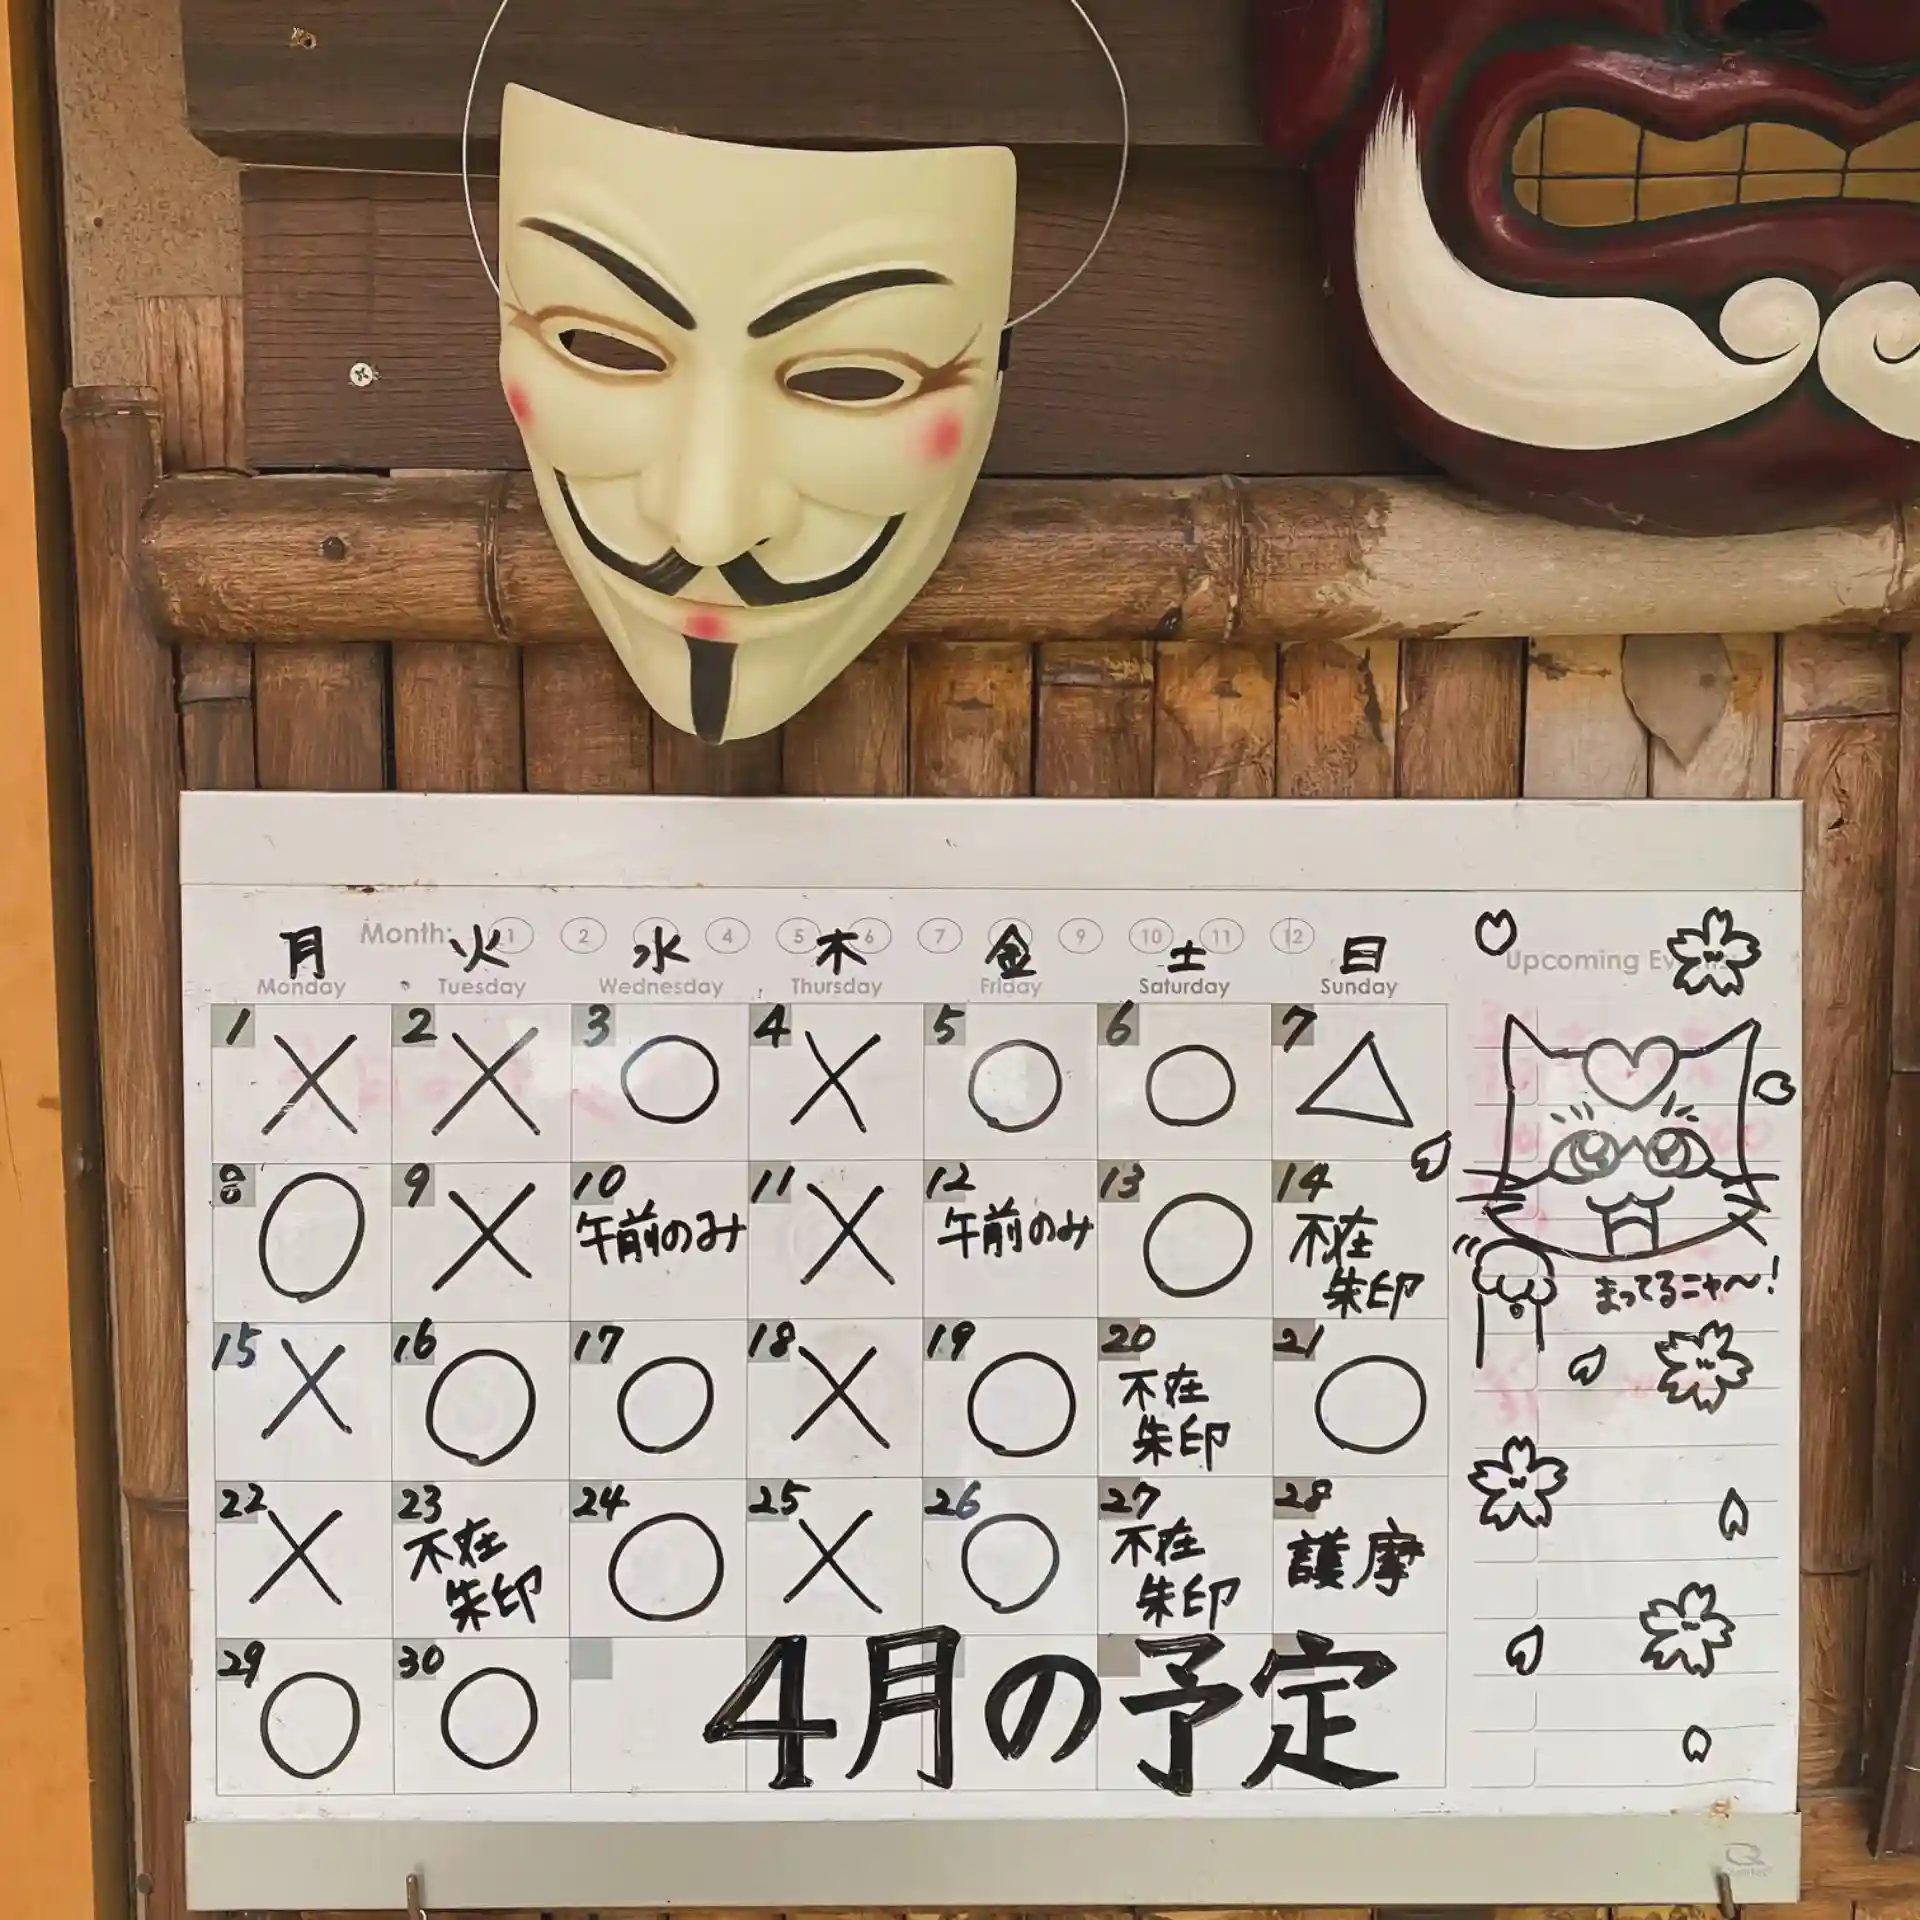 Month: 1 2 3 4 5 6 7 8 9 10 11 12
月 火 水 木 金 土 日
Monday Tuesday Wednesday Thursday Friday Saturday Sunday
Upcoming Events
1 × 2 × 3 ○ 4 × 5 ○ 6 ○ 7 △
8 ○ 9 × 10 午前のみ 11 × 12 午前のみ 13 ○ 14 不在
朱印
まってるニャ〜!
15 × 16 ○ 17 ○ 18 × 19 ○ 20 不在 21 ○
朱印
22 × 23 不在 24 ○ 25 × 26 ○ 27 不在 28 護摩
朱印 朱印
29 ○ 30 ○
4月の予定